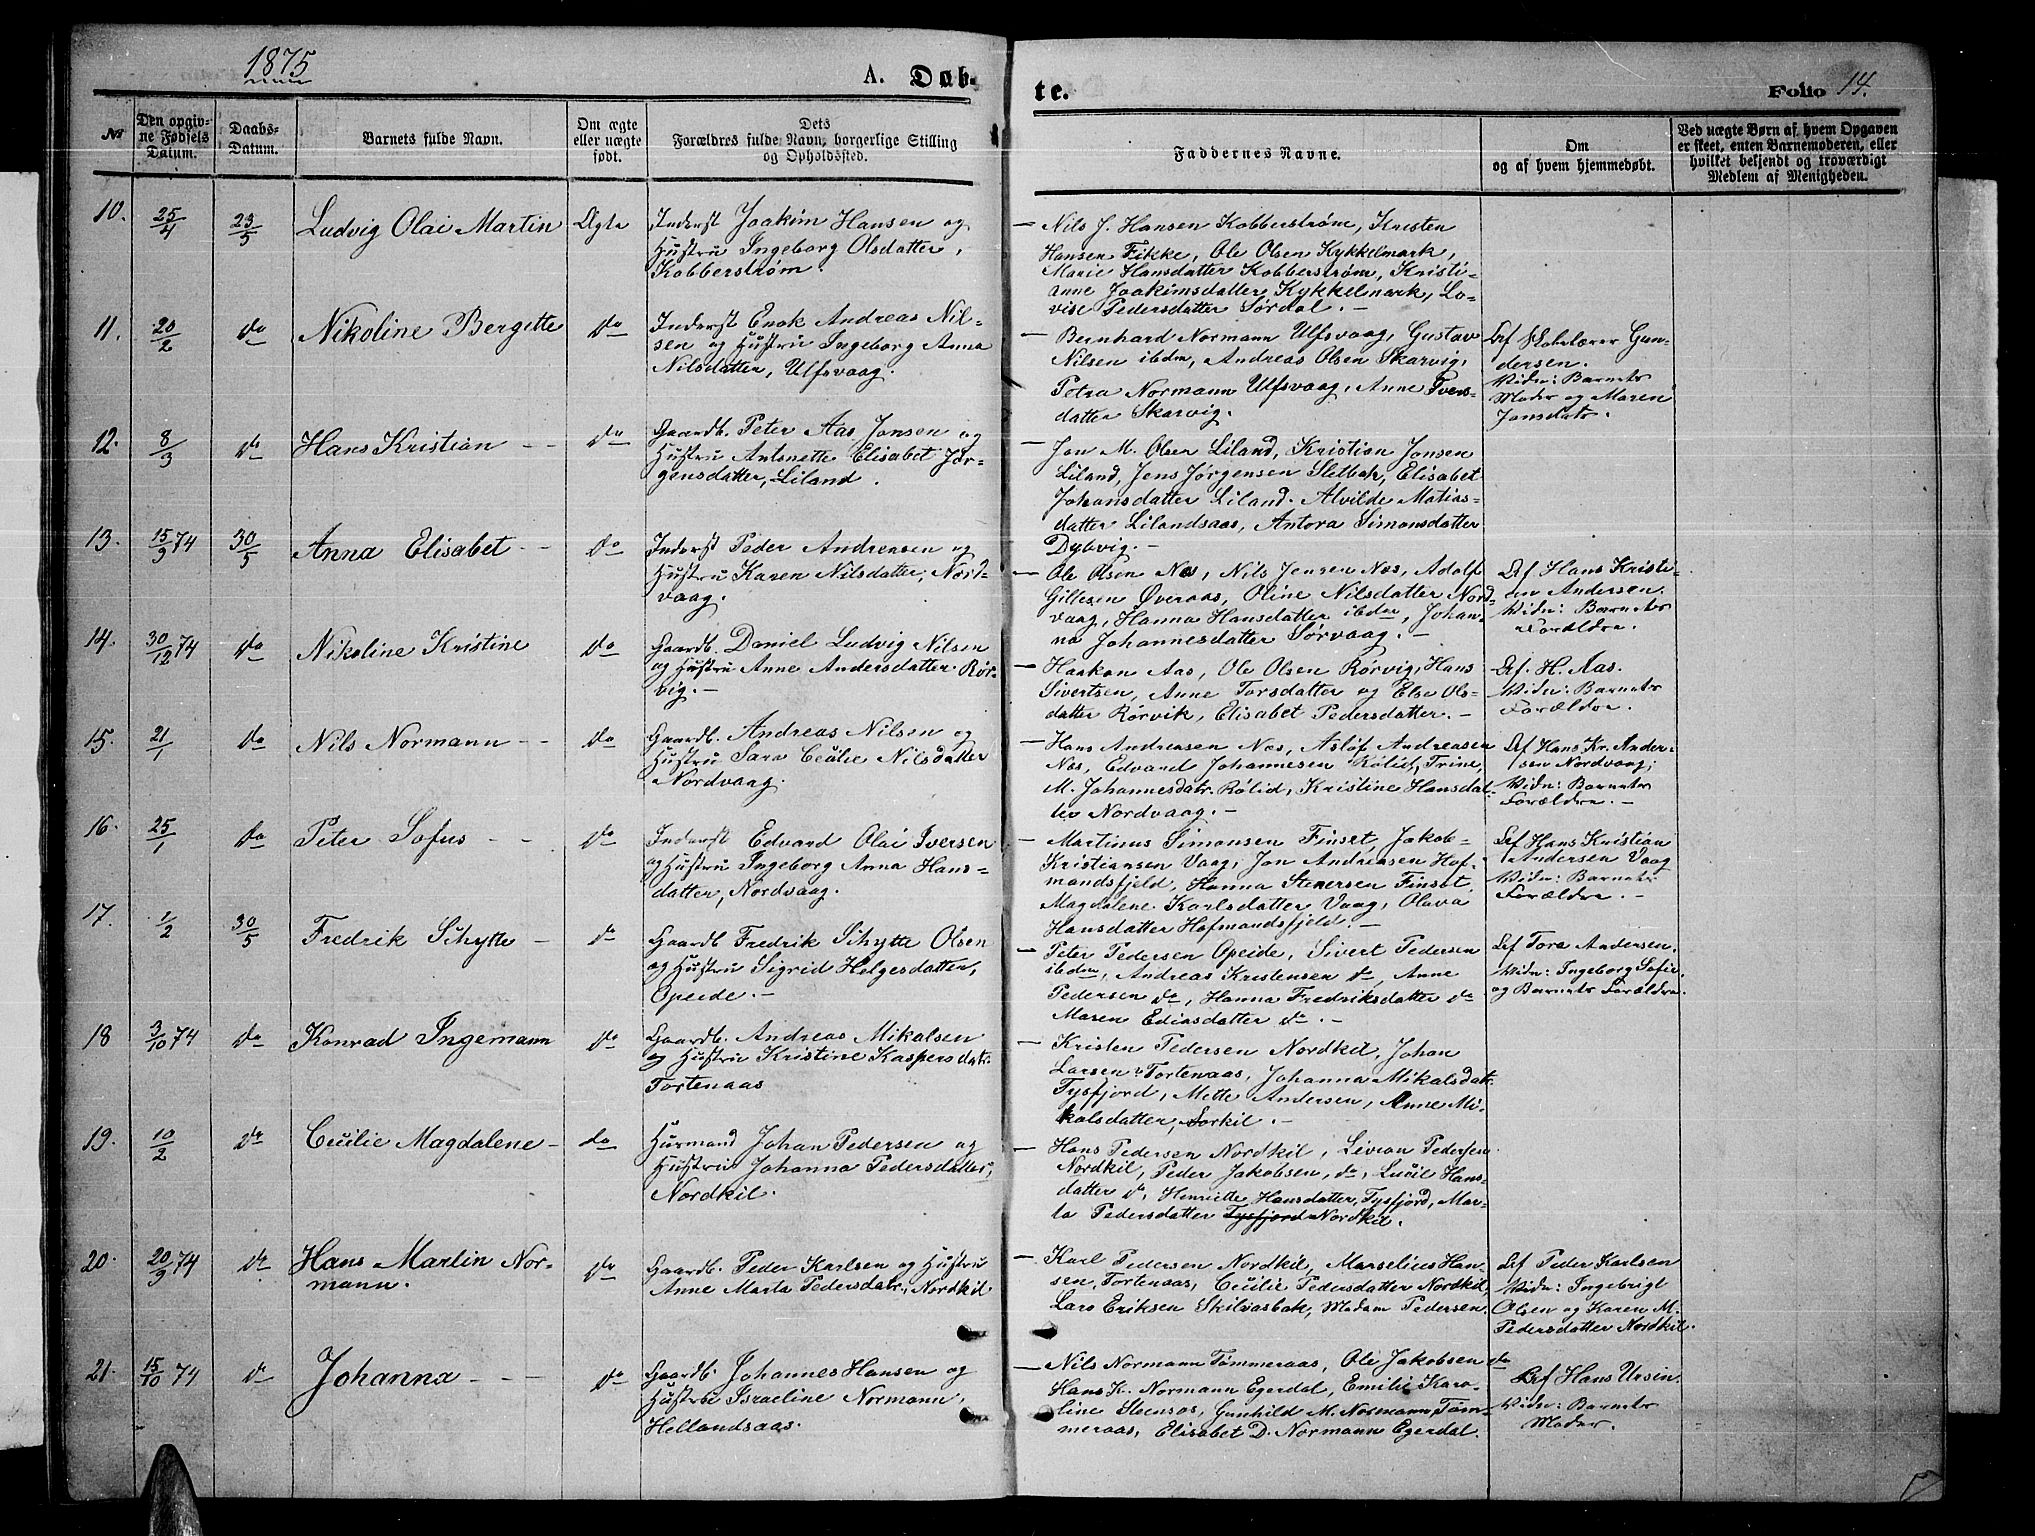 1875
A. Døb-
te.
Folio 14.
No
Den opgiv-
ne Fødsels
Datum.
Daabs-
Datum.
Barnets fulde Navn.
Om ægte
eller uægte
født.
Dets
Forældres fulde Navn, borgerlige Stilling
og Opholdssted.
Faddernes Navne.
Om
og af hvem hjemmedøbt.
Ved uægte Børn af hvem Opgaven
er skeet, enten Barnemoderen, eller
hvilket bekjendt og troværdigt
Medlem af Menigheden.
10.
25/4
23/5
Ludvig Olai Martin
Ægte
Inderst Joakim Hansen og
Hustru Ingeborg Olsdatter,
Kobberstrøm.
— Nils J. Hansen Kobberstrøm, Kristen
Hansen Fikke, Ole Olsen Kykkelmark,
Marie Hansdatter Kobberstrøm, Kristi-
anne Joakimsdatter Kykkelmark, Lo-
vise Pedersdatter Sørdal. —
11.
20/2
do
Nikoline Bergitte
do
Inderst Enok Andreas Nil-
sen og Hustru Ingeborg Anna
Nilsdatter, Ulfsvaag.
— Bernhard Normann Ulfsvaag, Gustav
Nilsen ibdm, Andreas Olsen Skarvig,
Petra Normann Ulfsvaag, Anne Ivers-
datter Skarvig.
Af Skolelærer Gun-
dersen.
Vidn: Barnets
Moder og Maren
Jonsdatr.
12.
8/3
do
Hans Kristian - -
do
Gaardb. Peter Aas Jonsen og
Hustru Antonette Elisabet Jør-
gensdatter, Liland.
— Jon M. Olsen Liland, Kristian Jonsen
Liland, Jens Jørgensen Sletbak, Elisabet
Johansdatter Liland. Alvilde Matias-
datter Lilandsaas, Antora Simonsdatter
Dybvig. —
13.
15/9 74
30/5
Anna Elisabet - -
do
Inderst Peder Andreasen og
Hustru Karen Nilsdatter, Nord-
vaag.
— Ole Olsen Nes, Nils Jensen Nes, Adolf
Gillesen Øveraas, Oline Nilsdatter Nord-
vaag, Hanna Hansdatter ibdm, Johan-
na Johannesdatter Sørvaag. —
Af Hans Kristi-
an Andersen.
Vidn: Barnets
Forældre.
14.
30/12 74
do
Nikoline Kristine
do
Gaardb. Daniel Ludvig Nilsen
og Hustru Anne Andersdatter Rør-
vig. —
— Haakon Aas, Ole Olsen Rørvig, Hans
Sivertsen, Anne Torsdatter og Else Ols-
datter Rørvik, Elisabet Pedersdatter. —
Af. H. Aas.
Vidn: Barnets
Forældre.
15.
21/1
do
Nils Normann - -
do
Gaardb. Andreas Nilsen og
Hustru Sara Cecilie Nilsdatter
Nordvaag.
— Hans Andreasen Nes, Asløf Andreasen
Nes, Edvard Johannesen Rølid, Trine
M. Johannesdatr. Rølid, Kristine Hansdat-
ter Nordvaag. —
Af Hans Kr. Ander-
sen Nordvaag;
Vidn: Barnets
Forældre. —
16.
25/1
do
Peter Sofus - -
do
Inderst Edvard Olai Iversen
og Hustru Ingeborg Anna Hans-
datter, Nordvaag.
— Martinus Simonsen Finset, Jakob
Kristiansen Vaag, Jon Andreasen Hof-
mandsfjeld, Hanna Stenersen Finset,
Magdalene Karlsdatter Vaag, Olava
Hansdatter Hofmandsfjeld. —
Af Hans Kristian
Andersen Vaag
Vidn: Barnets
Forældre. —
17.
1/2
30/5
Fredrik Schytte -
do
Gaardb Fredrik Schytte Olsen
og Hustru Sigrid Helgesdatter,
Opeide. —
— Peter Pedersen Opeide, Sivert Pedersen
ibdm, Andreas Kristensen do, Anne
Pedersen do, Hanna Fredriksdatter do
Maren Ediasdatter do. —
Af Tora Andersen.
Vidn: Ingeborg Sofie
og Barnets Forældre.
18
3/10 74
do
Konrad Ingemann
do
Gaardb. Andreas Mikalsen
og Hustru Kristine Kaspersdatr.
Tortenaas
— Kristen Pedersen Nordkil, Johan
Larsen Tortenaas, Johanna Mikalsdatr.
Tysfjord, Mette Andersen, Anne Mi-
kalsdatter, Sorkil. —
19.
10/2
do
Cecilie Magdalene -
do
Husmand Johan Pedersen og
Hustru Johanna Pedersdatter,
Nordkil.
— Hans Pedersen Nordkil, Pedersen
Nordkil, Peder Jakobsen, do, Hans-
datter do, Henriette Hansdatter, Tysfjord, Mar-
ta Pedersdatter Tysfjord Nordkil.
20.
20/9 74
do
Hans Martin Nor-
mann.
do
Gaardb. Peder Karlsen og Hustru
Anne Marta Pedersdatr, Nordkil
— Karl Pedersen Nordkil, Marselius Han-
sen, Tortenaas, Cecilie Pedersdatter Nordkil,
Lars Eriksen Skilvasbak, Madam Pedersen.
Af Peder Karlsen
Vidn: Ingebrigt
Olsen og Karen M.
Pedersdatter Nordkil.
21.
15/10 74
do
Johanna - - -
do
Gaardb. Johannes Hansen og
Hustru Israeline Normann,
Hellandsaas.
— Nils Normann Tømmeraas, Ole Jakobsen do
Hans K. Normann Egerdal, Emilie Karo-
line Stensøs, Gunhild M. Normann, Tøm-
meraas, Elisabet D. Normann Egerdal.
Af Hans Ursin.
Vidn: Barnets
Moder.